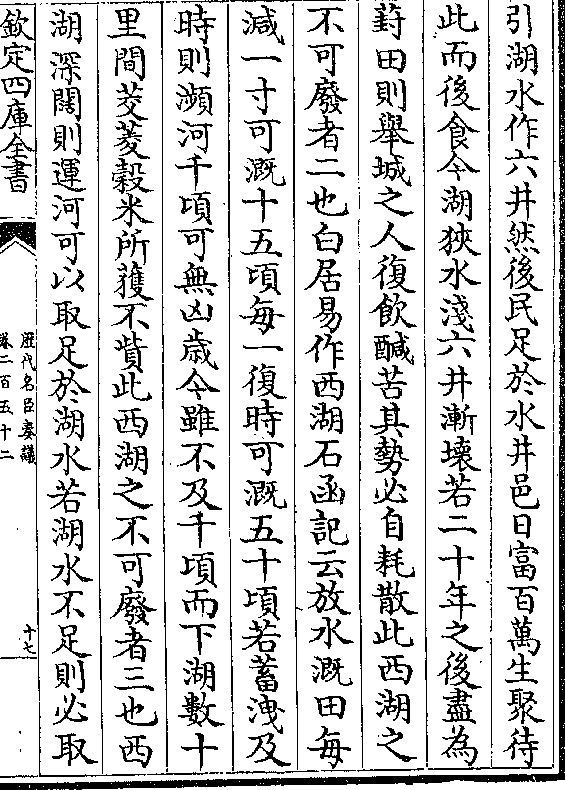 引湖水作六井然後民足於水井邑日富百萬生聚待
此而後食今湖狹水淺六井漸壞若二十年之後盡為
葑田則舉城之人復飲鹹苦其勢必自耗散此西湖之
不可廢者二也白居易作西湖石函記云放水溉田每
減一寸可溉十五頃每一復時可溉五十頃若蓄洩及
時則瀕河千頃可無凶歲今雖不及千頃而下湖數十
里間茭菱穀米所獲不貲此西湖之不可廢者三也西
湖深闊則運河可以取足於湖水若湖水不足則必取
欽定四庫全書
歷代名臣奏議
卷二百五十二
十七